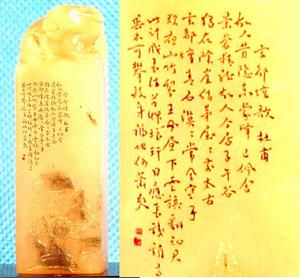 玄都壇歌 杜甫
故人昔隱東蒙峰已佩含
景蒼精龍故人今居子午谷
獨在陰崖結茅屋 太古
玄都壇青石漠漠常風寒子
規夜啼山竹裂王母晝下雲旗翻知君
此計成長往芝草琅玕日應長鐵鎖高
垂不可攀致身福地何蕭爽